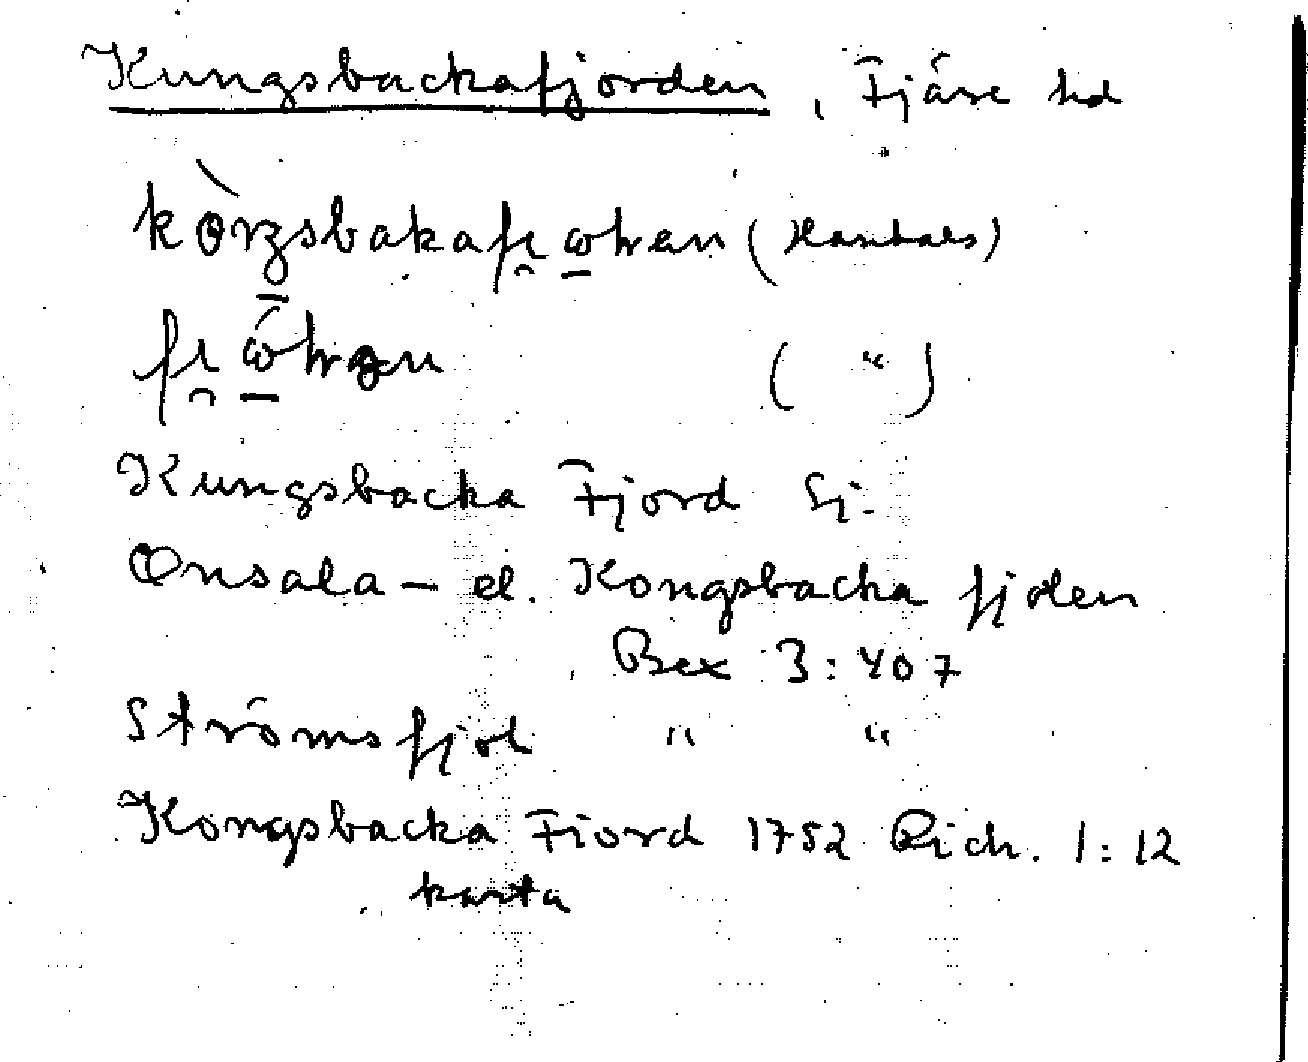 Kungsbackafjorden, Fjäre hd
(Hanhals)
( " )
Kungsbacka Fjord Sj.
Onsala- el. Kongsbacka fjolen
Bex 3:407
Strömsfjol " "
Kongsbacka Fiord 1752 Rich. 1:12
karta